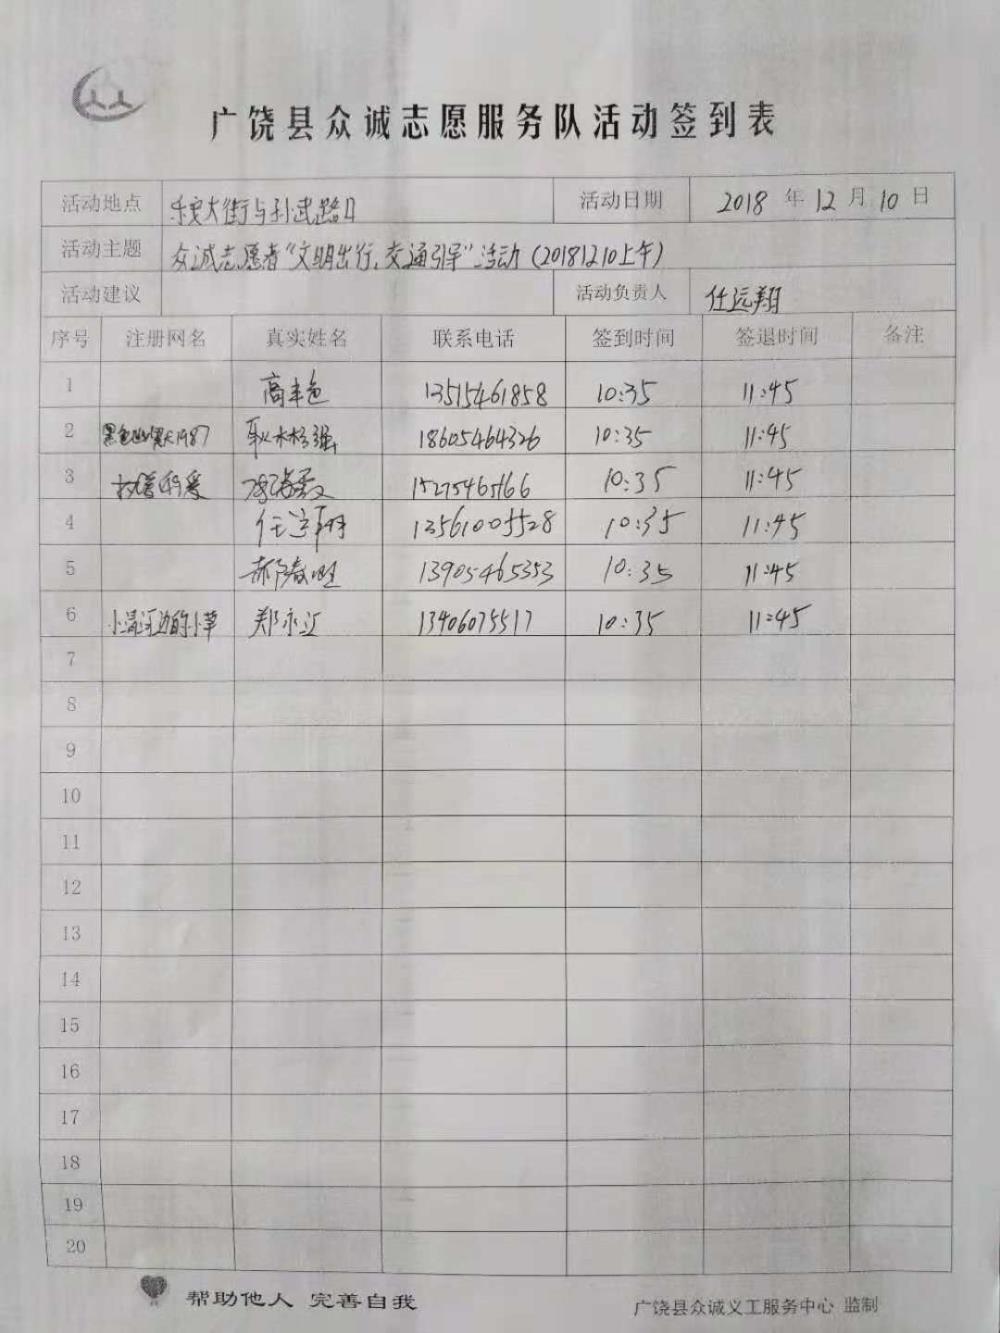 广饶县众诚志愿服务队活动签到表
活动地点 乐安大街与孙武路口 活动日期 2018 年 12 月 10 日
活动主题 众诚志愿者“文明出行,交通引导”活动(20181210上午)
活动建议 活动负责人 任远翔
序号 注册网名 真实姓名 联系电话 签到时间 签退时间 备注
1 高丰色 13515461858 10:35 11:45
2 黑色幽默大1987 耿树强 18605464326 10:35 11:45
3 15275465166 10:35 11:45
4 任远翔 13561005528 10:35 11:45
5 13905465353 10:35 11:45
6 小清河边的小草 郑永江 13406075517 10:35 11:45
7
8
9
10
11
12
13
14
15
16
17
18
19
20
帮助他人 完善自我
广饶县众诚义工服务中心 监制